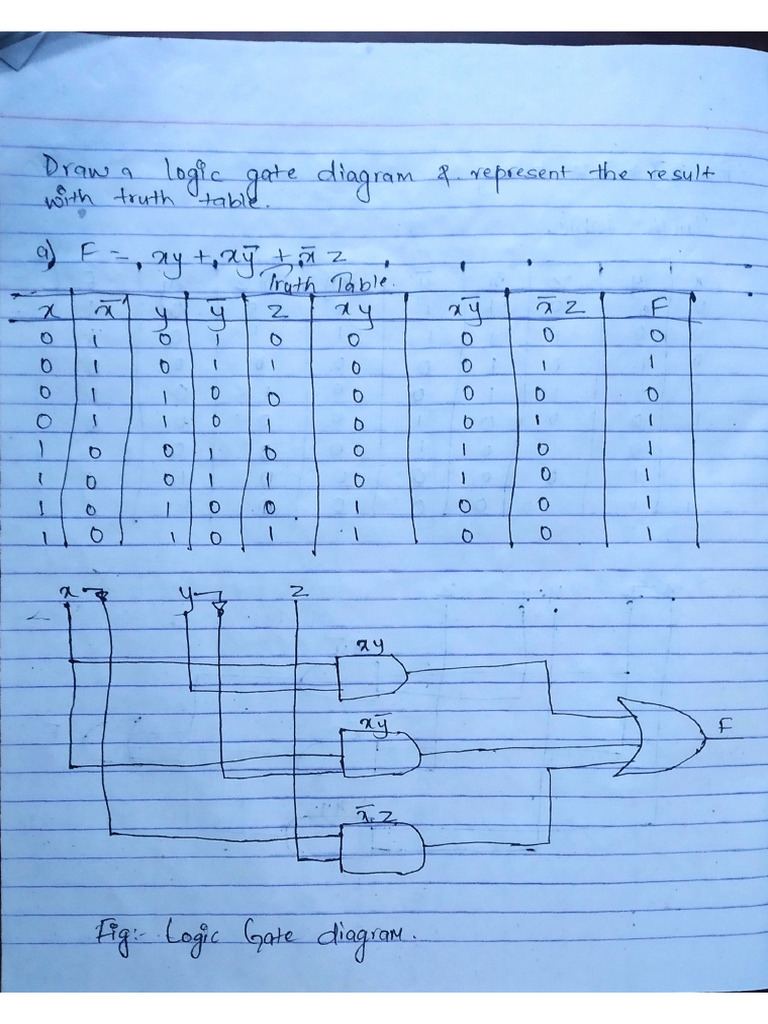 Draw a logic gate diagram & represent the result
with truth table.
a) F = xy + xȳ + x̄ z
Truth Table.
x x̄ y ȳ z xy xȳ x̄ z F
0 1 0 1 0 0 0 0 0
0 1 0 1 1 0 0 1 1
0 1 1 0 0 0 0 0 0
0 1 1 0 1 0 0 1 1
1 0 0 1 0 0 1 0 1
1 0 0 1 1 0 1 0 1
1 0 1 0 0 1 0 0 1
1 0 1 0 1 1 0 0 1
x y z
xy
xȳ
F
x̄.z
Fig:- Logic Gate diagram.